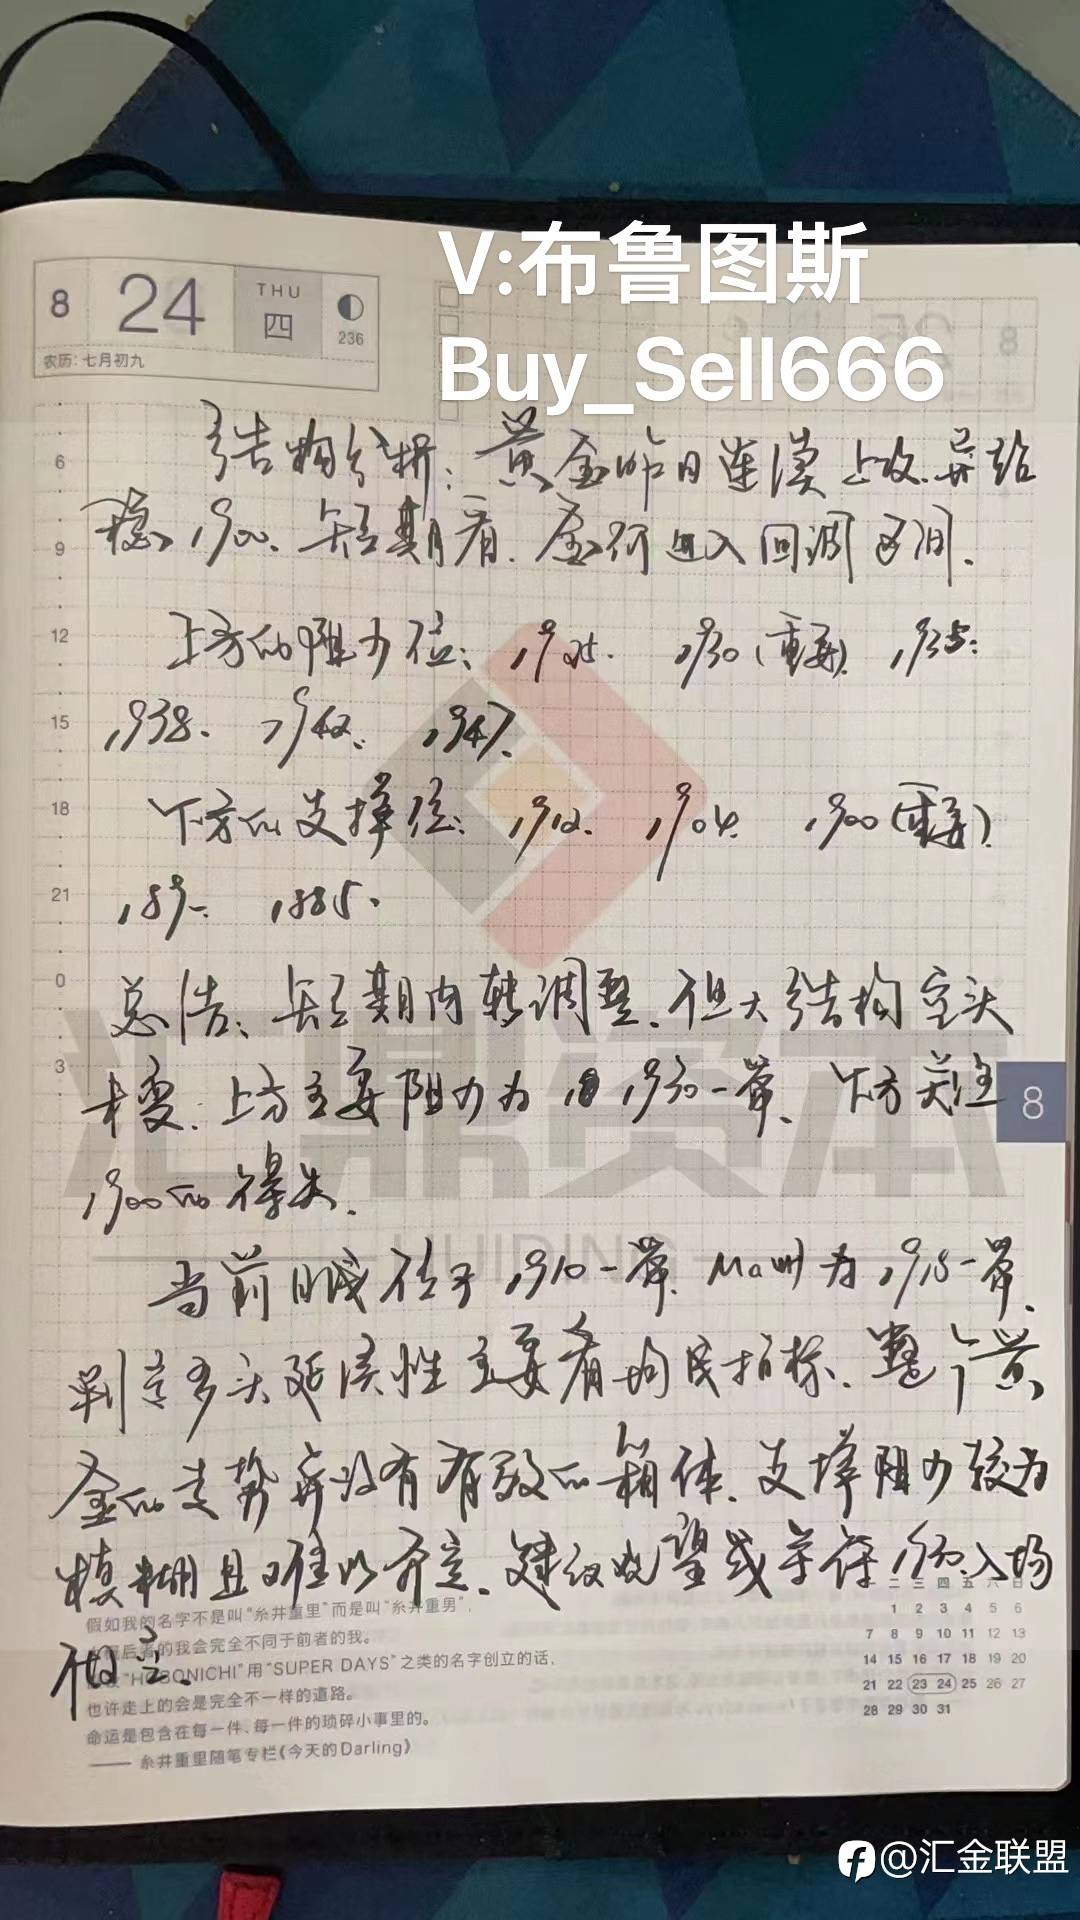 V:布鲁图斯
Buy_Sell666
8 24 THU 四 236
农历：七月初九
结构分析：黄金昨日连续上攻.并站
稳1900、短期看.金价进入回调区间.
上方的阻力位：1925. 1930(重要). 1935.
1938. 1942. 1947.
下方的支撑位：1912. 1904. 1900(重要).
189. 1885.
总结：短期内转调整.但大结构空头
未变.上方主要阻力为1930一带、下方关注
1900的得失.
当前日线位于1910一带. Ma 为1918一带.
判定多头延续性主要看均线指标.整个黄
金的走势并没有有效的箱体.支撑阻力较为
模糊且难以界定.建议观望或等待1930入场
做空.
6
9
12
15
18
21
0
3
8
汇鼎资本
HUIDING
假如我的名字不是叫“糸井重里”而是叫“糸井重男”，
后者的我会完全不同于前者的我。
“HOBONICHI”用“SUPER DAYS”之类的名字创立的话，
也许走上的会是完全不一样的道路。
命运是包含在每一件、每一件的琐碎小事里的。
—— 糸井重里随笔专栏《今天的Darling》
一 二 三 四 五 六 日
1 2 3 4 5 6
7 8 9 10 11 12 13
14 15 16 17 18 19 20
21 22 23 24 25 26 27
28 29 30 31
@汇金联盟